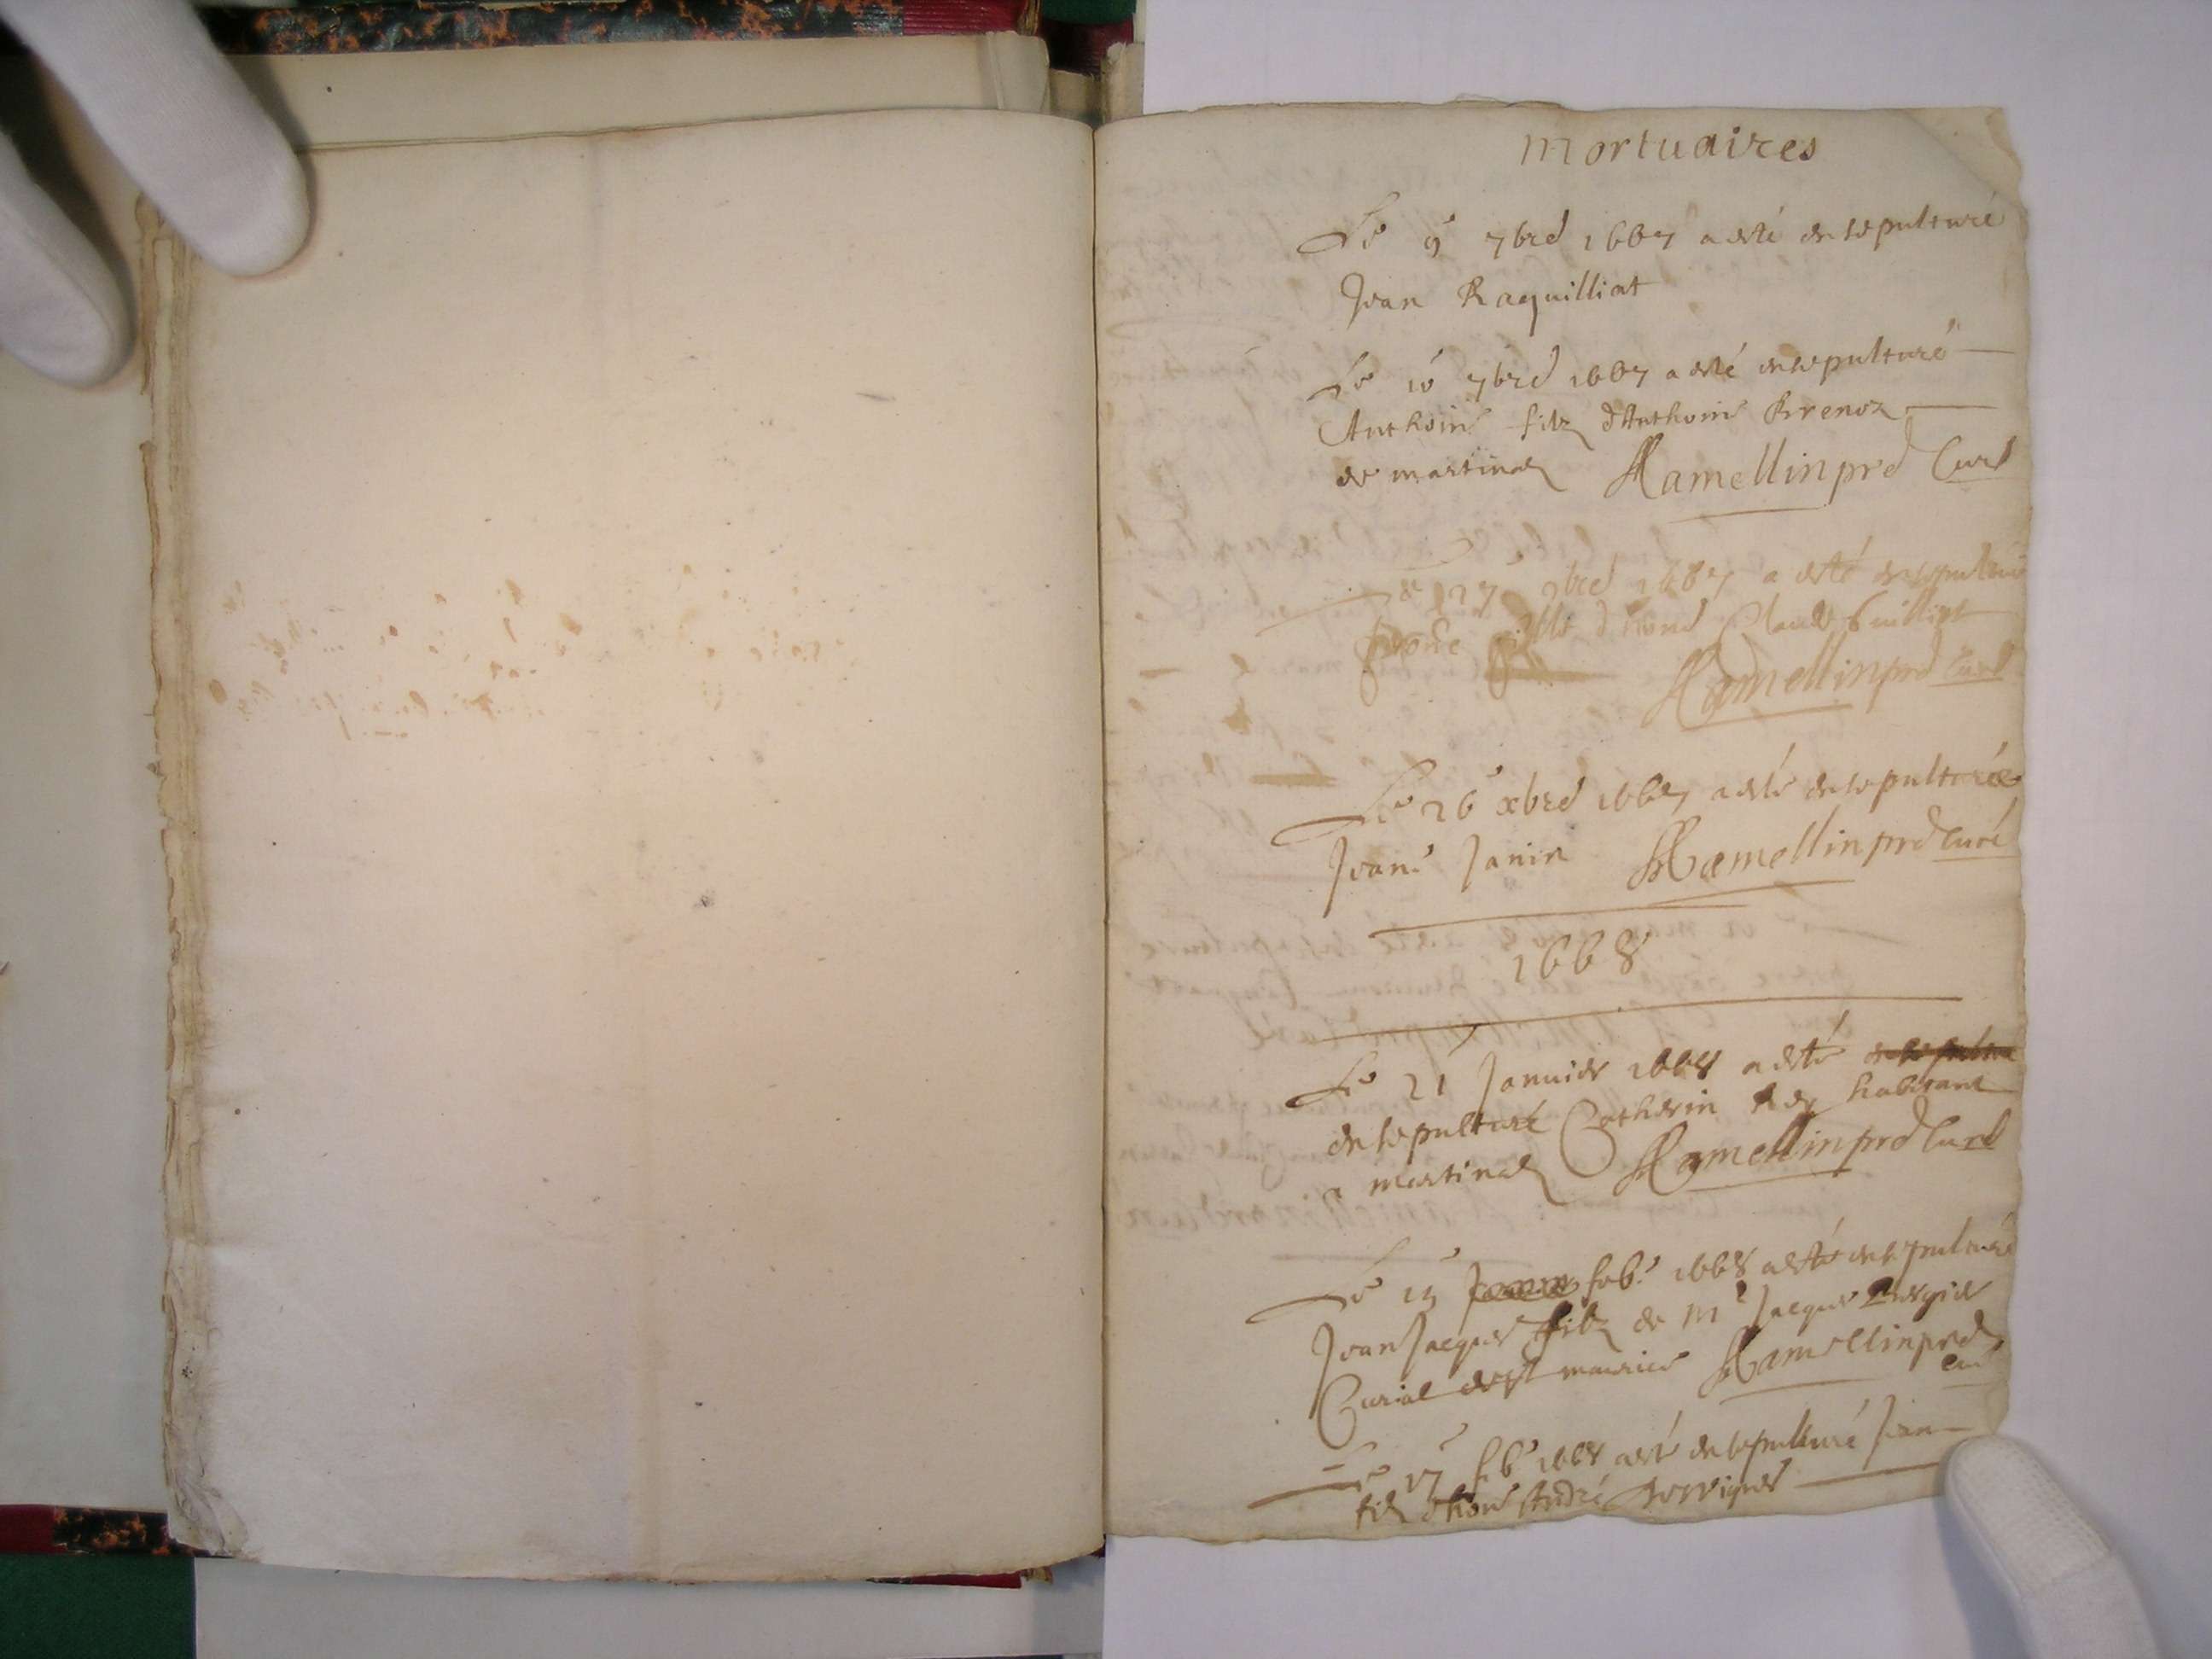 mortuaires
Le 9 7bre 1667 a esté ensepulturé
Jean Raquilliat
Le 10 7bre 1667 a esté ensepulturé
Anthoine filz d'Anthoine
de martinaz Hamellin pre Curé
Le 27 1667 a esté ensepulturé
fille Claude
Hamellin pre Curé
Le 26 xbre 1667 a esté ensepulturée
Jeane Janin Hamellin pre Curé
1668
Le 21 Janvier 1668 a esté
ensepulturé Catherin Rey habitant
a martinaz Hamellin pre Curé
Le feb. 1668 a esté ensepulturé
Jean Jacques filz de Mr Jacque
Curial de st maurice Hamellin pre
Curé
Le 17 feb 1668 a esté ensepulturé Jean
filz d'hone André